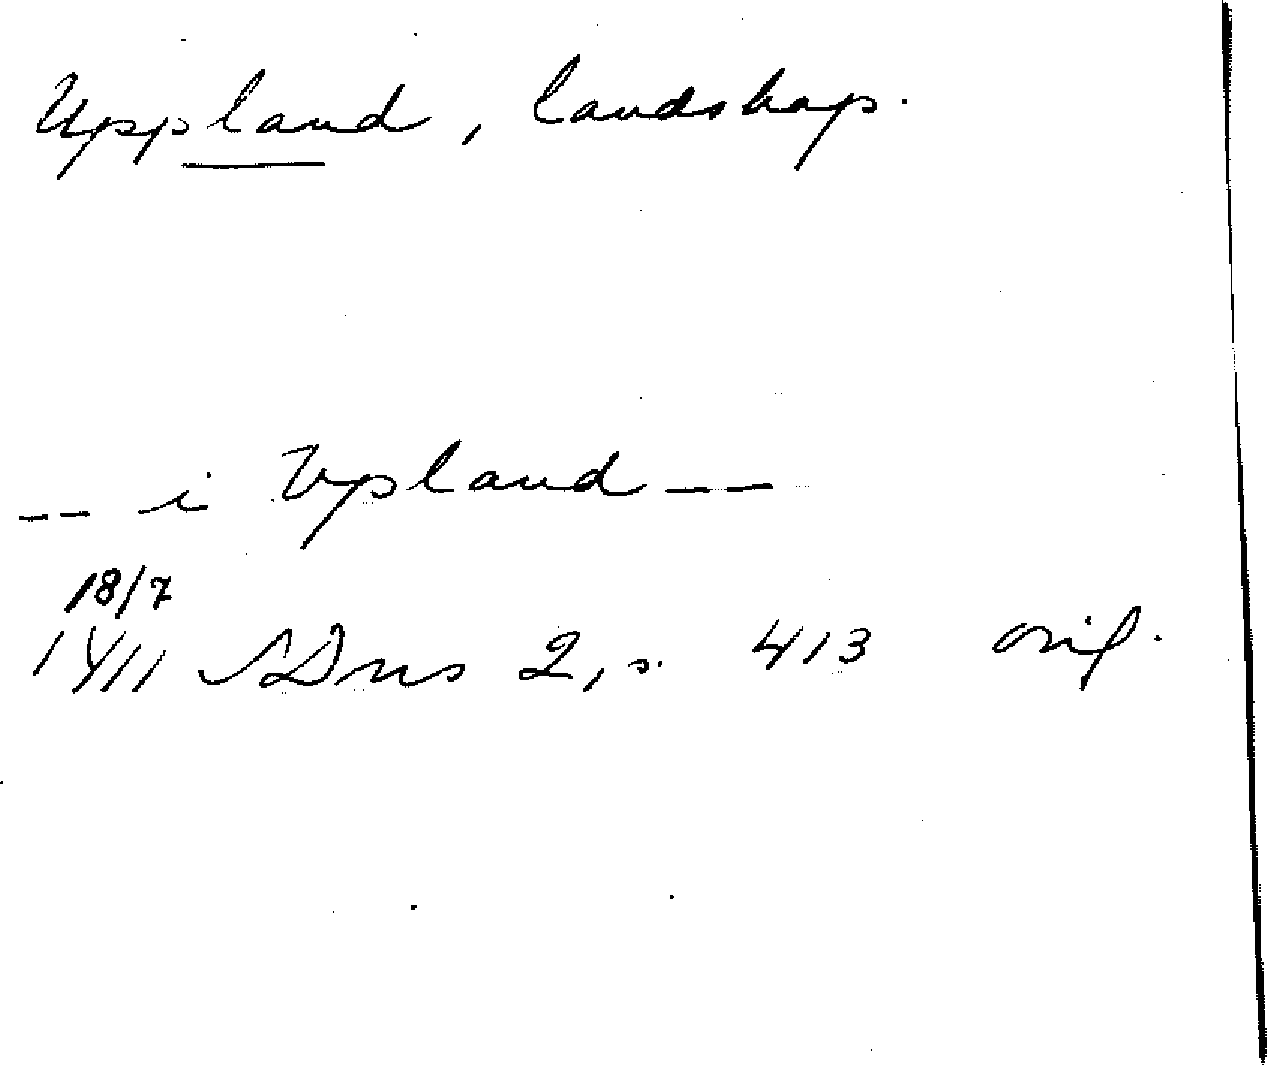 Uppland, landskap.
-- i Vpland --
18/7
1411 SDns 2, s. 413 orig.